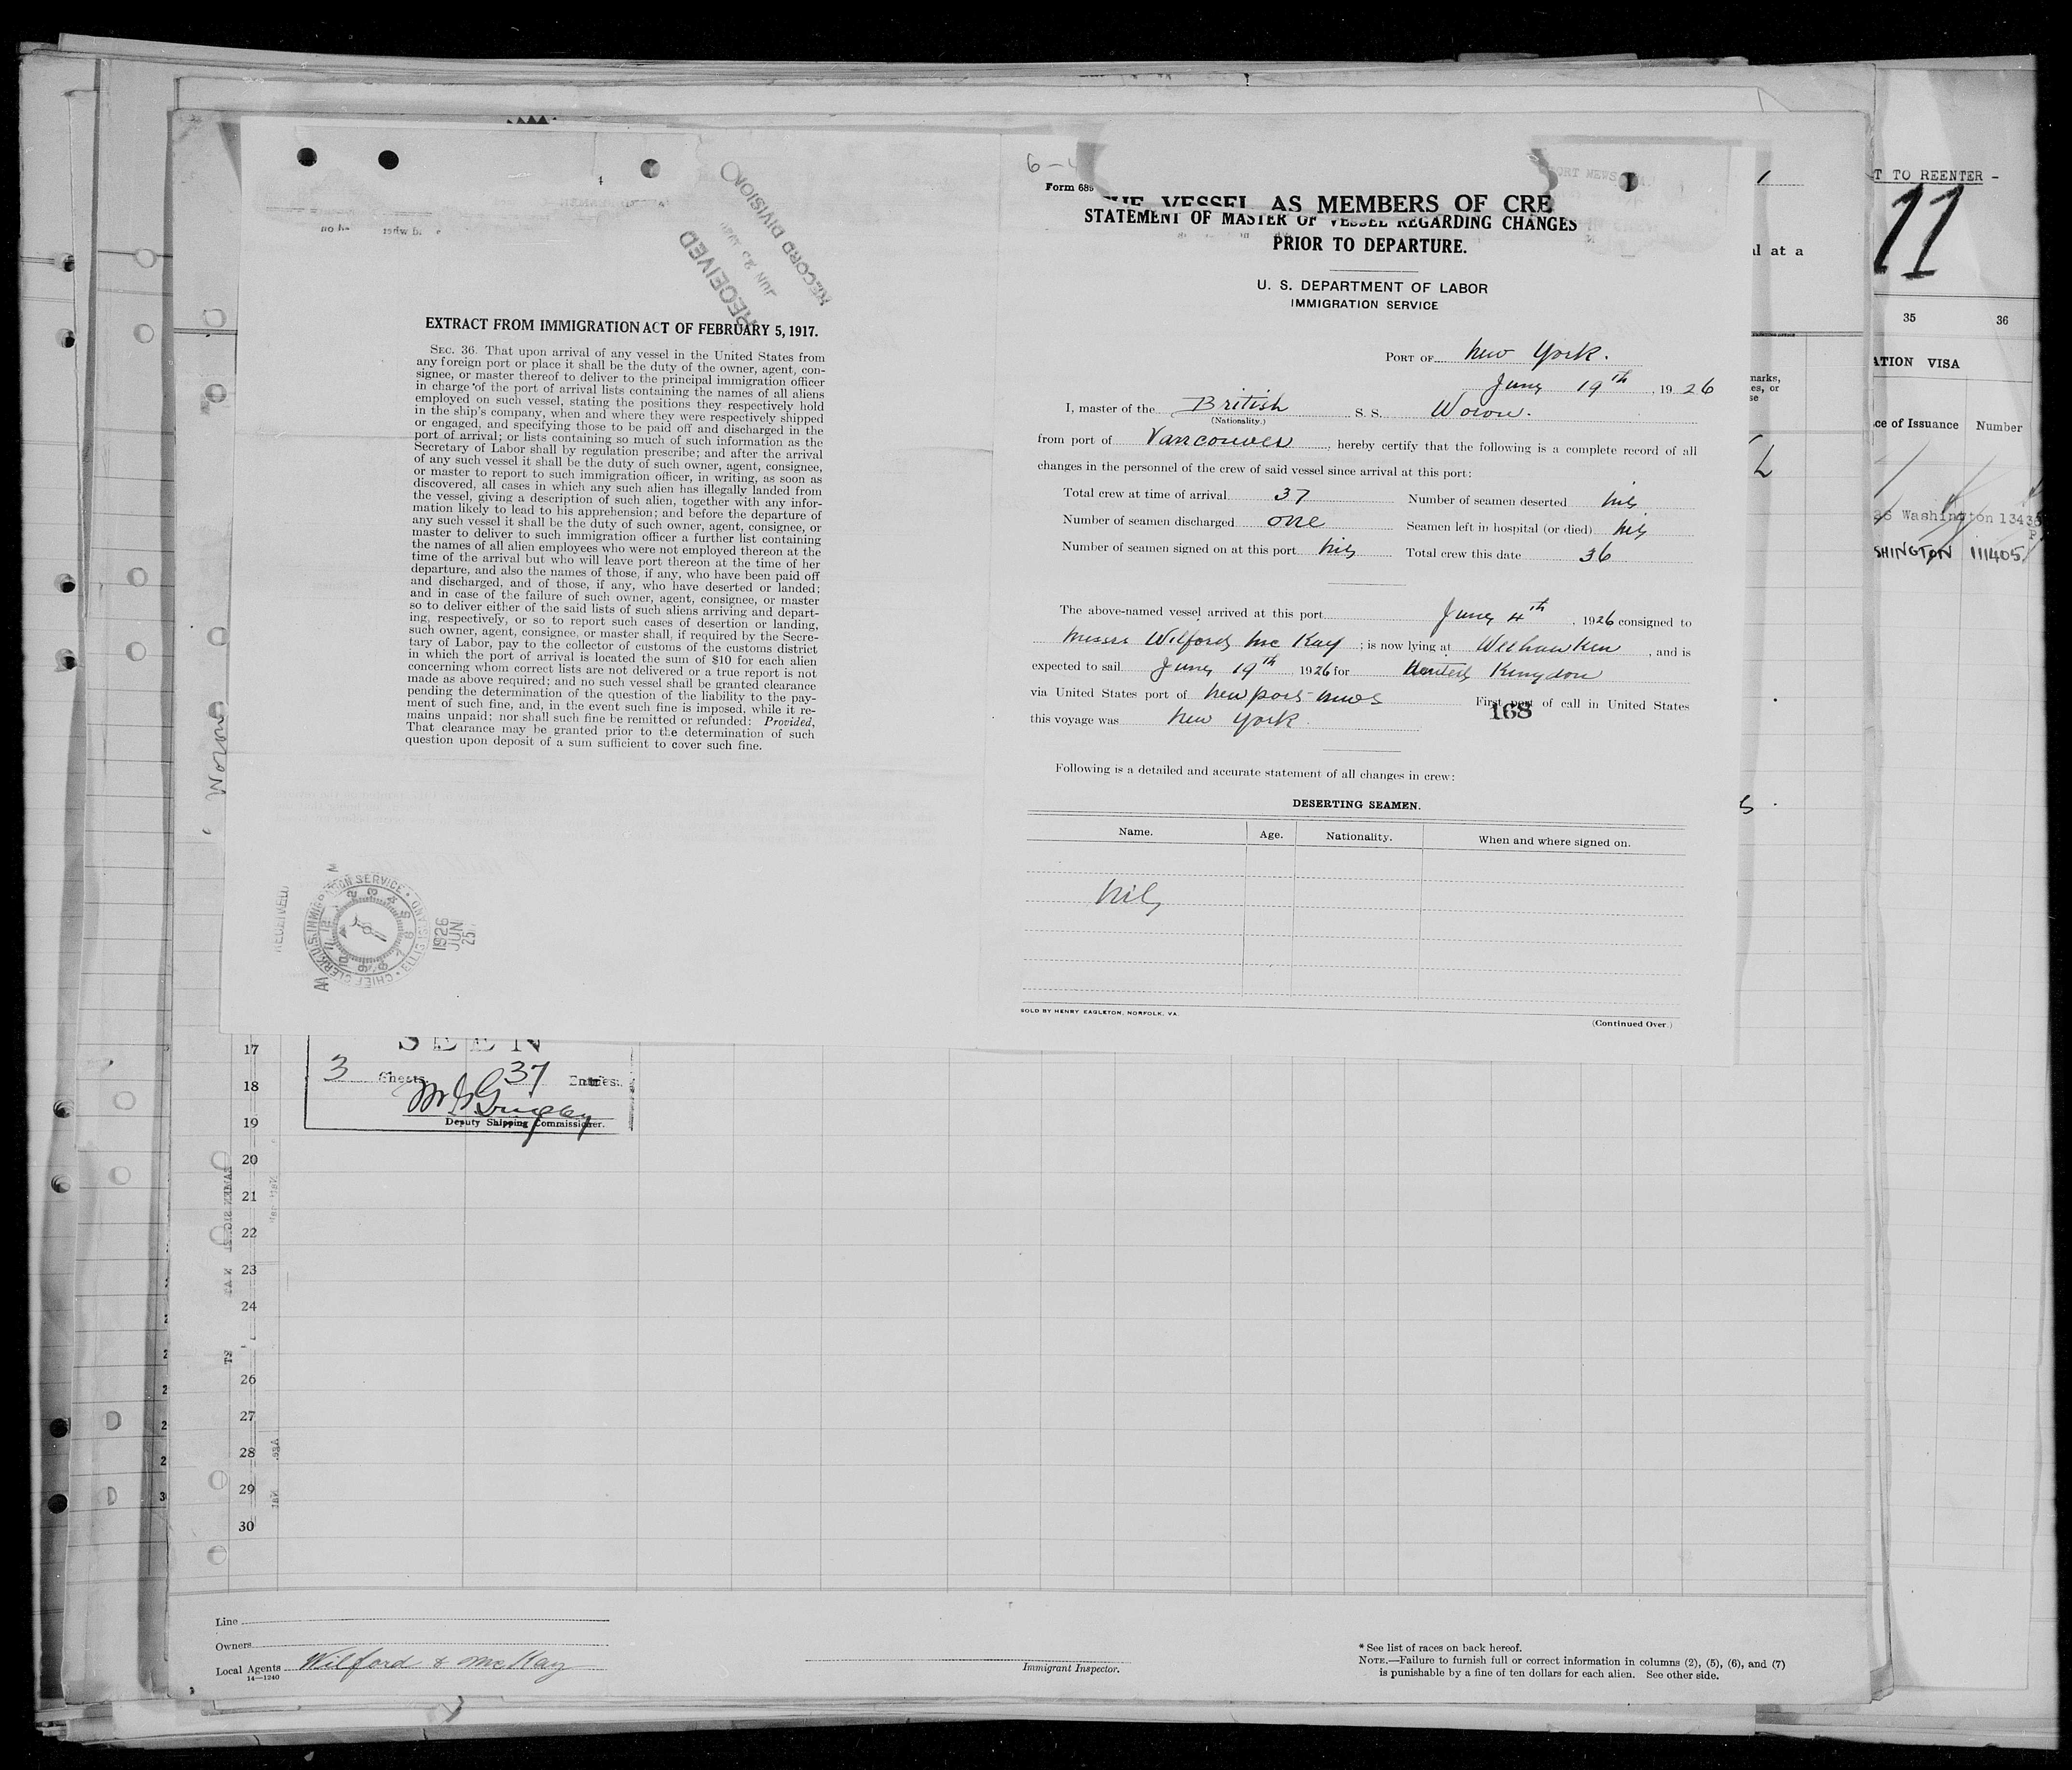 RECORD DIVISION
RECEIVED
EXTRACT FROM IMMIGRATION ACT OF FEBRUARY 5, 1917.
SEC. 36. That upon arrival of any vessel in the United States from
any foreign port or place it shall be the duty of the owner, agent, con-
signee, or master thereof to deliver to the principal immigration officer
in charge of the port of arrival lists containing the names of all aliens
employed on such vessel, stating the positions they respectively hold
in the ship's company, when and where they were respectively shipped
or engaged, and specifying those to be paid off and discharged in the
port of arrival; or lists containing so much of such information as the
Secretary of Labor shall by regulation prescribe; and after the arrival
of any such vessel it shall be the duty of such owner, agent, consignee,
or master to report to such immigration officer, in writing, as soon as
discovered, all cases in which any such alien has illegally landed from
the vessel, giving a description of such alien, together with any infor-
mation likely to lead to his apprehension; and before the departure of
any such vessel it shall be the duty of such owner, agent, consignee, or
master to deliver to such immigration officer a further list containing
the names of all alien employees who were not employed thereon at the
time of the arrival but who will leave port thereon at the time of her
departure, and also the names of those, if any, who have been paid off
and discharged, and of those, if any, who have deserted or landed;
and in case of the failure of such owner, agent, consignee, or master
so to deliver either of the said lists of such aliens arriving and depart-
ing, respectively, or so to report such cases of desertion or landing,
such owner, agent, consignee, or master shall, if required by the Secre-
tary of Labor, pay to the collector of customs of the customs district
in which the port of arrival is located the sum of $10 for each alien
concerning whom correct lists are not delivered or a true report is not
made as above required; and no such vessel shall be granted clearance
pending the determination of the question of the liability to the pay-
ment of such fine, and, in the event such fine is imposed, while it re-
mains unpaid; nor shall such fine be remitted or refunded: Provided,
That clearance may be granted prior to the determination of such
question upon deposit of a sum sufficient to cover such fine.
RECEIVED
CHIEF CLERK U.S. IMMIGRATION SERVICE ELLIS ISLAND
1926 JUN 25
Form 689
VESSEL AS MEMBERS OF CRE
STATEMENT OF MASTER OF VESSEL REGARDING CHANGES
PRIOR TO DEPARTURE.
U. S. DEPARTMENT OF LABOR
IMMIGRATION SERVICE
PORT OF New York.
June 19th, 1926
I, master of the British S. S. Woron.
(Nationality.)
from port of Vancouver, hereby certify that the following is a complete record of all
changes in the personnel of the crew of said vessel since arrival at this port:
Total crew at time of arrival 37 Number of seamen deserted nil
Number of seamen discharged one Seamen left in hospital (or died) nil
Number of seamen signed on at this port nil Total crew this date 36
The above-named vessel arrived at this port June 4th, 1926 consigned to
Messrs Wilford McKay; is now lying at Weehawken, and is
expected to sail June 19th, 1926 for United Kingdom
via United States port of Newport News First port of call in United States
168
this voyage was New York
Following is a detailed and accurate statement of all changes in crew:
DESERTING SEAMEN.
Name. Age. Nationality. When and where signed on.
nil
SOLD BY HENRY EAGLETON, NORFOLK, VA.
(Continued Over.)
T TO REENTER -
11
al at a
35 36
ATION VISA
marks,
es, or
se
ce of Issuance Number
26 Washington 13436
SHINGTON 111405
Woron
SEEN
3 Sheets 37 Entries.
Deputy Shipping Commissioner.
17
18
19
20
21
22
23
24
26
27
28
29
30
Line
Owners
Local Agents Wilford & McKay
14—1240
Immigrant Inspector.
* See list of races on back hereof.
NOTE.—Failure to furnish full or correct information in columns (2), (5), (6), and (7)
is punishable by a fine of ten dollars for each alien. See other side.